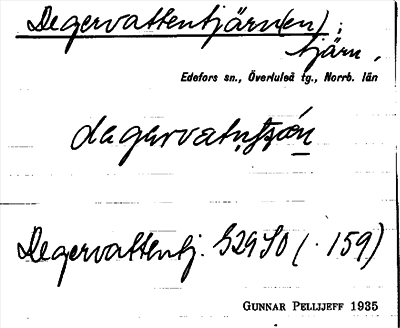 Degervattentjärn(en);
tjärn,
Edefors sn., Överluleå tg., Norrb. län
Degervattentj. S29SO (. 159)
GUNNAR PELLIJEFF 1935